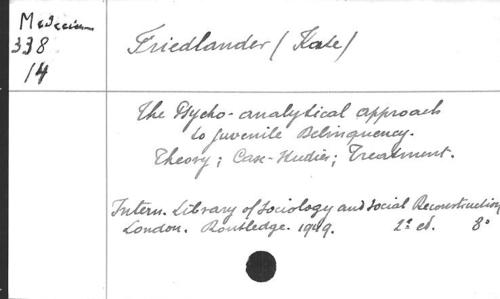 Medecine
338
14
Friedlander (Kate)
The Psycho-analytical approach
to Juvenile Delinquency.
Theory; Case-studies; Treatment.
Intern. Library of Sociology and Social Reconstruction
London. Routledge. 1949. 2e ed. 8°